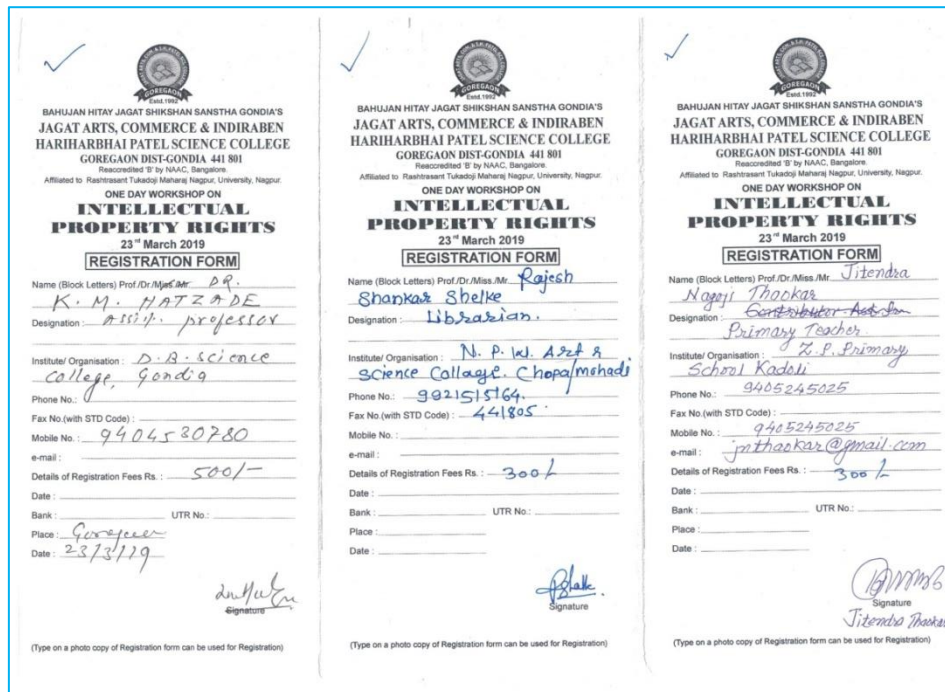 GOREGAON
Estd.1992
BAHUJAN HITAY JAGAT SHIKSHAN SANSTHA GONDIA'S
JAGAT ARTS, COMMERCE & INDIRABEN
HARIHARBHAI PATEL SCIENCE COLLEGE
GOREGAON DIST-GONDIA 441 801
Reaccredited 'B' by NAAC, Bangalore.
Affiliated to Rashtrasant Tukadoji Maharaj Nagpur, University, Nagpur.
ONE DAY WORKSHOP ON
INTELLECTUAL
PROPERTY RIGHTS
23rd March 2019
REGISTRATION FORM
Name (Block Letters) Prof./Dr./Miss./Mr. DR.
K. M. HATZADE
Designation : Assi. professor
Institute/ Organisation : D.B. Science
College, Gondia
Phone No.:
Fax No.(with STD Code) :
Mobile No. : 9404530780
e-mail :
Details of Registration Fees Rs. : 500/-
Date :
Bank : UTR No.:
Place :
Date : 23/3/19
Signature
(Type on a photo copy of Registration form can be used for Registration)
GOREGAON
Estd.1992
BAHUJAN HITAY JAGAT SHIKSHAN SANSTHA GONDIA'S
JAGAT ARTS, COMMERCE & INDIRABEN
HARIHARBHAI PATEL SCIENCE COLLEGE
GOREGAON DIST-GONDIA 441 801
Reaccredited 'B' by NAAC, Bangalore.
Affiliated to Rashtrasant Tukadoji Maharaj Nagpur, University, Nagpur.
ONE DAY WORKSHOP ON
INTELLECTUAL
PROPERTY RIGHTS
23rd March 2019
REGISTRATION FORM
Name (Block Letters) Prof./Dr./Miss./Mr. Rajesh
Shankar Shelke
Designation : Librarian.
Institute/ Organisation : N. P. W. Art &
Science Collage. Chopa/mohadi
Phone No.: 9921515164.
Fax No.(with STD Code) : 441805
Mobile No. :
e-mail :
Details of Registration Fees Rs. : 300/-
Date :
Bank : UTR No.:
Place :
Date :
Signature
(Type on a photo copy of Registration form can be used for Registration)
GOREGAON
Estd.1992
BAHUJAN HITAY JAGAT SHIKSHAN SANSTHA GONDIA'S
JAGAT ARTS, COMMERCE & INDIRABEN
HARIHARBHAI PATEL SCIENCE COLLEGE
GOREGAON DIST-GONDIA 441 801
Reaccredited 'B' by NAAC, Bangalore.
Affiliated to Rashtrasant Tukadoji Maharaj Nagpur, University, Nagpur.
ONE DAY WORKSHOP ON
INTELLECTUAL
PROPERTY RIGHTS
23rd March 2019
REGISTRATION FORM
Name (Block Letters) Prof./Dr./Miss./Mr. Jitendra
Nagoji Thaokar
Designation :
Primary Teacher
Institute/ Organisation : Z.P. Primary
School Kadoli
Phone No.: 9405245025
Fax No.(with STD Code) :
Mobile No. : 9405245025
e-mail : jnthaokar@gmail.com
Details of Registration Fees Rs. : 300/-
Date :
Bank : UTR No.:
Place :
Date :
Signature
Jitendra Thaokar
(Type on a photo copy of Registration form can be used for Registration)